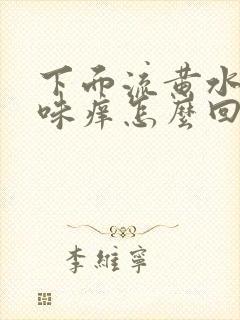 下面流黄水
味痒怎麼回
李維寧